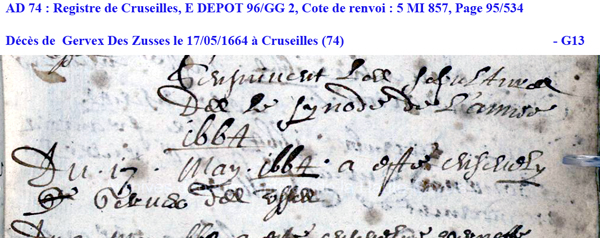 AD 74 : Registre de Cruseilles, E DEPOT 96/GG 2, Cote de renvoi : 5 MI 857, Page 95/534
Décès de Gervex Des Zusses le 17/05/1664 à Cruseilles (74) - G13
Ensuivent les sepultures
Des le synode de l'annee
1664
Du 17 May 1664 a esté ensevely
Gervex des